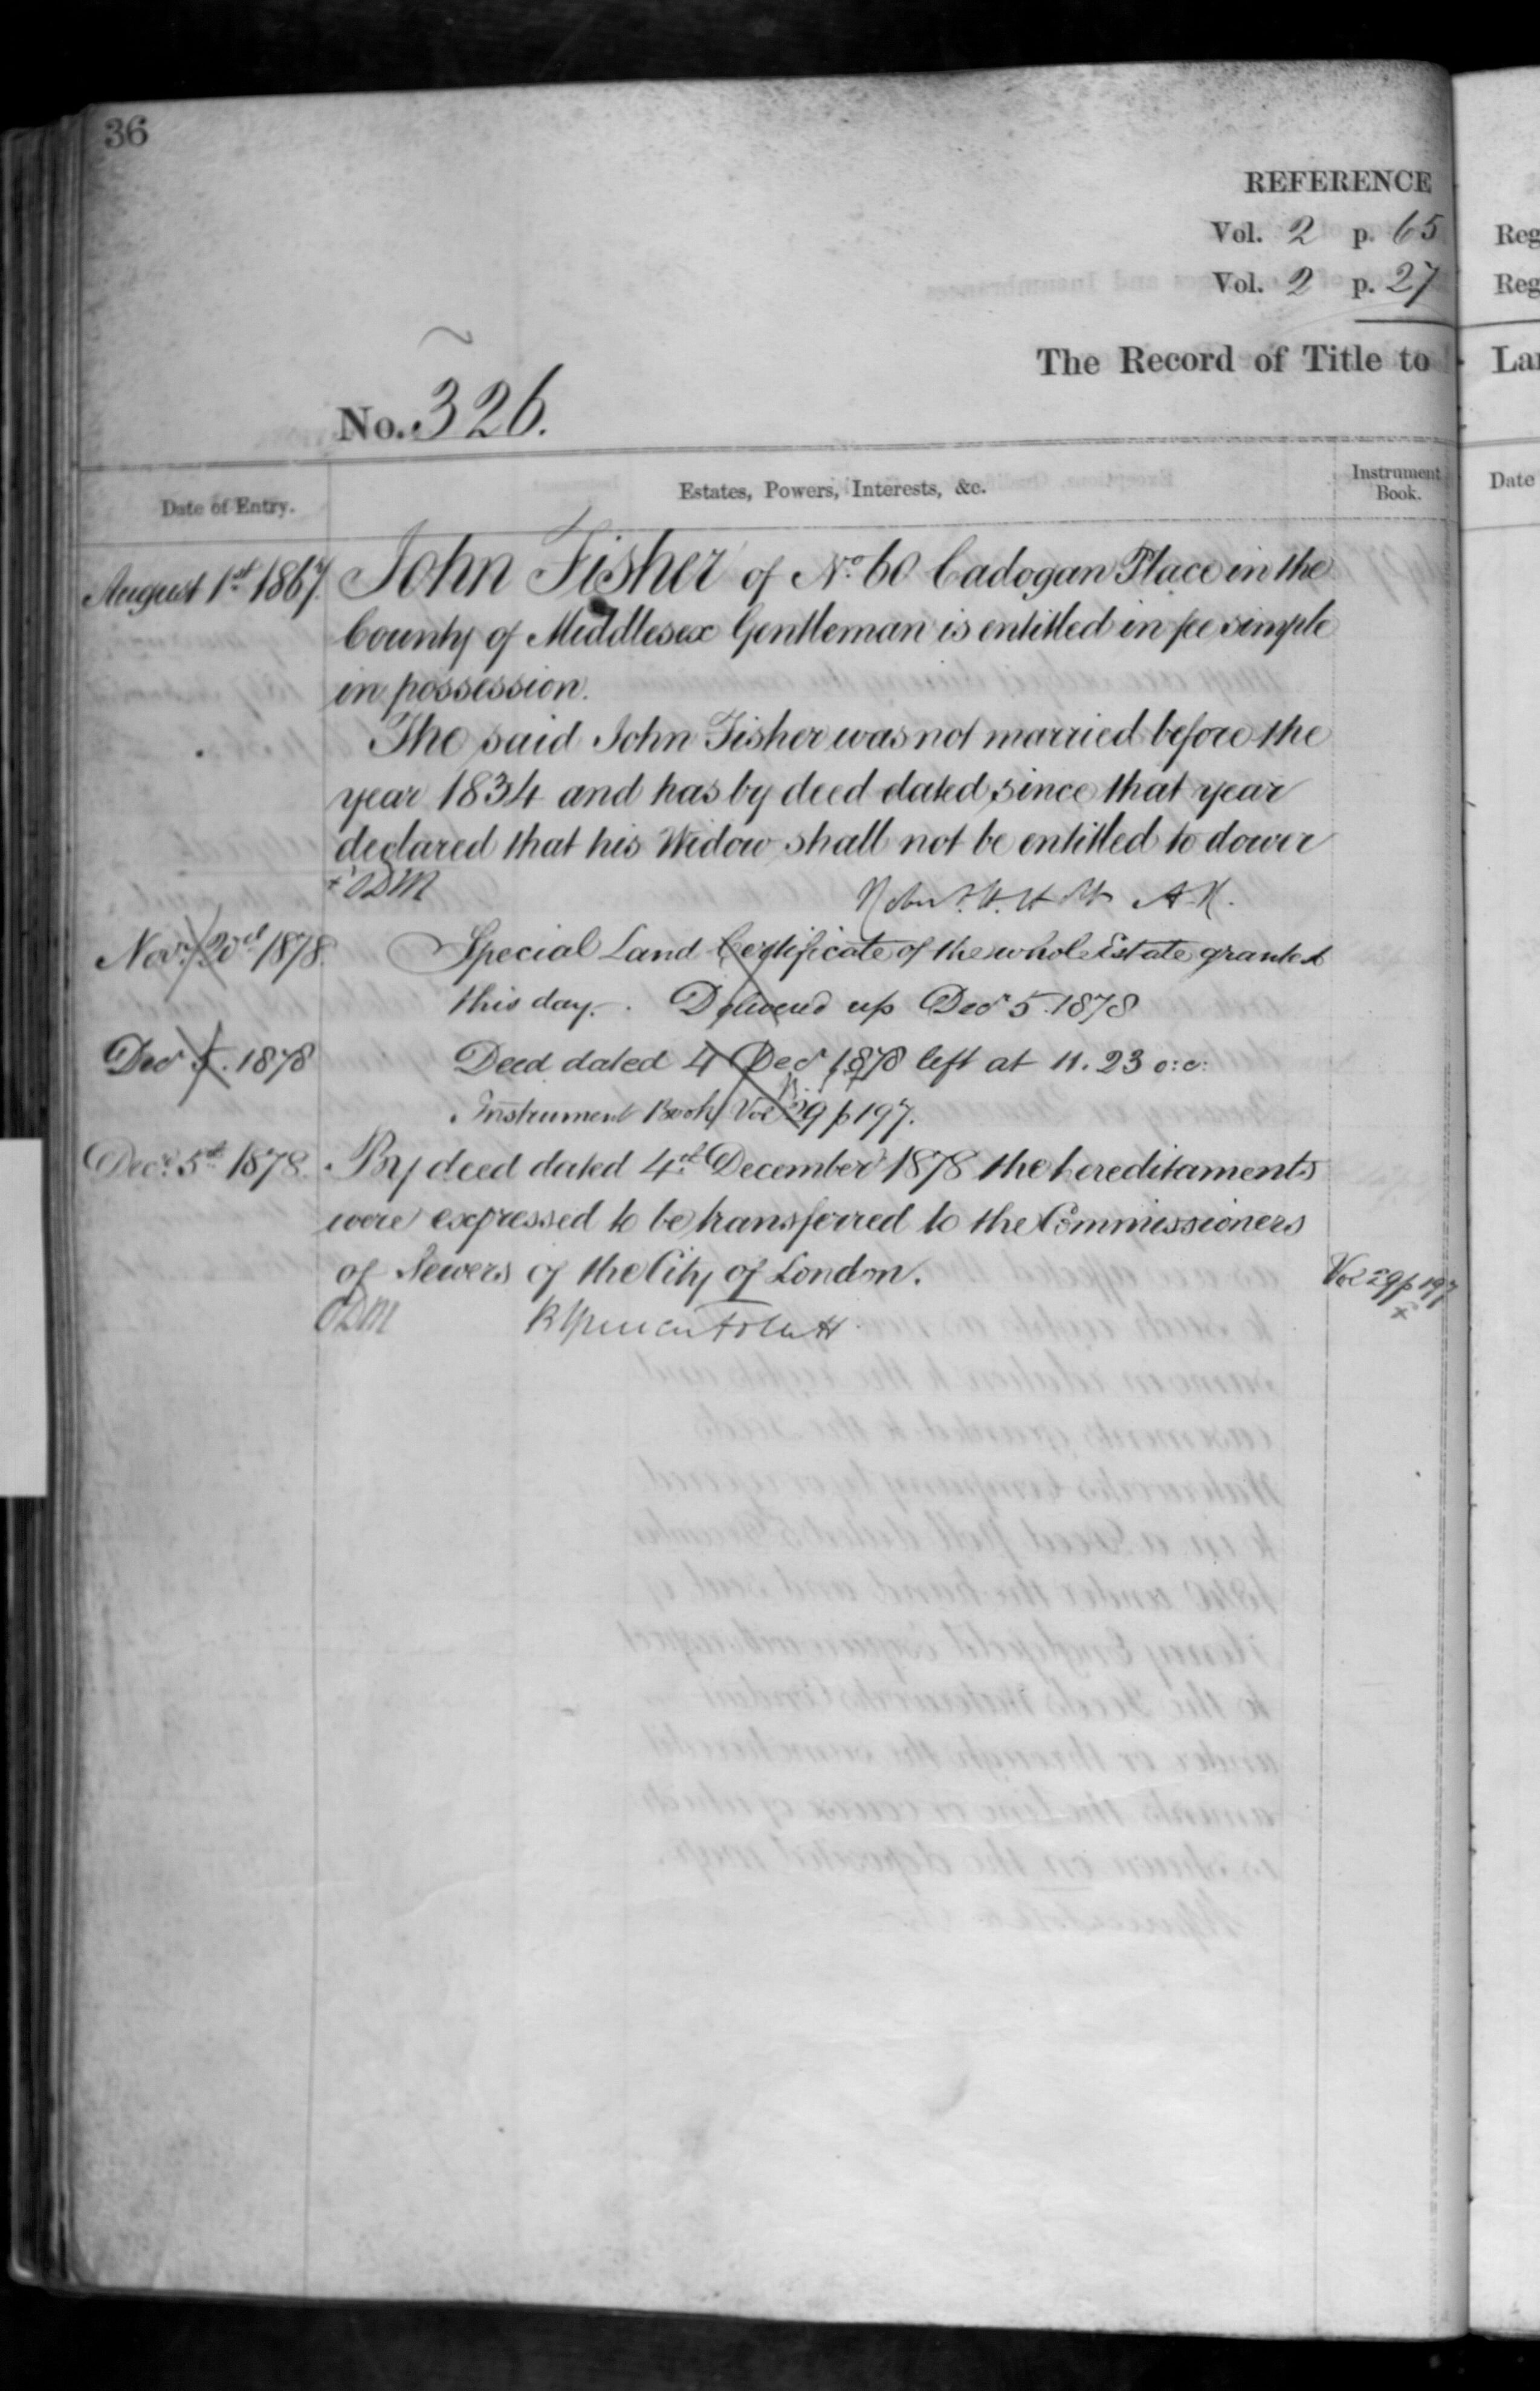 36
REFERENCE
Vol. 2 p. 65
Vol. 2 p. 27
The Record of Title to
No. 326.
Date of Entry.
Estates, Powers, Interests, &c.
Instrument Book.
August 1st 1867. John Fisher of No. 60 Cadogan Place in the
County of Middlesex Gentleman is entitled in fee simple
in possession.
The said John Fisher was not married before the
year 1834 and has by deed dated since that year
declared that his Widow shall not be entitled to dower
A.R.
Novr. 1878. Special Land Certificate of the whole Estate granted
this day. Delivered up Decr 5. 1878
Decr 5. 1878 Deed dated 4 Decr 1878 left at 11.23 o:c:
Instrument Book Vol 29 p 197.
Decr. 5th 1878. By deed dated 4th December 1878 the hereditaments
were expressed to be transferred to the Commissioners
of Sewers of the City of London. Vol 29 p 197
Reg
Reg
Lan
Date